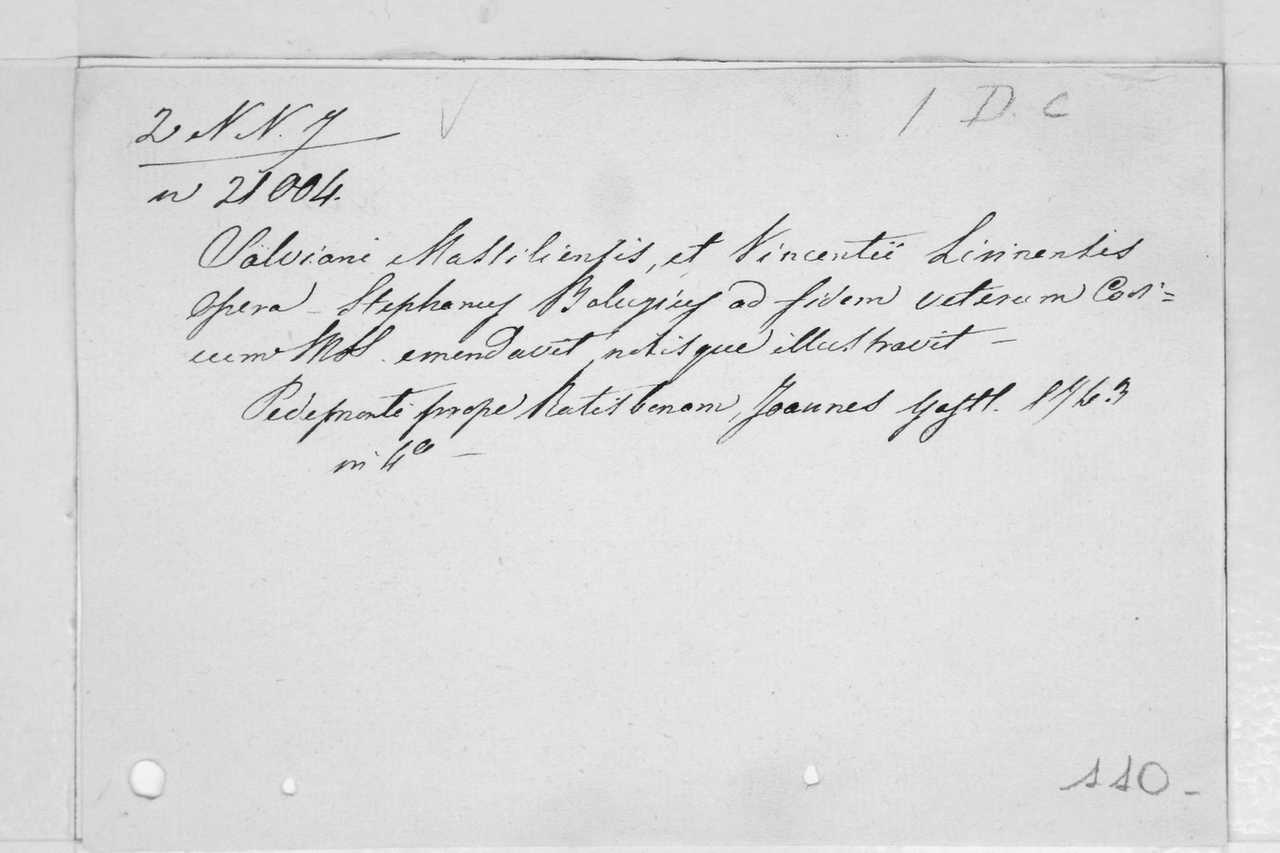 2 N N. 7 1 D. C
n 21004.
Salviani Massiliensis, et Vincentii Lirinensis
opera - Stephanus Baluzius ad fidem veterum Codi=
cum MSS. emendavit notisque illustravit -
Pedeponti prope Ratisbonam, Joannes Gastl. 1763
in 4o -
110 -